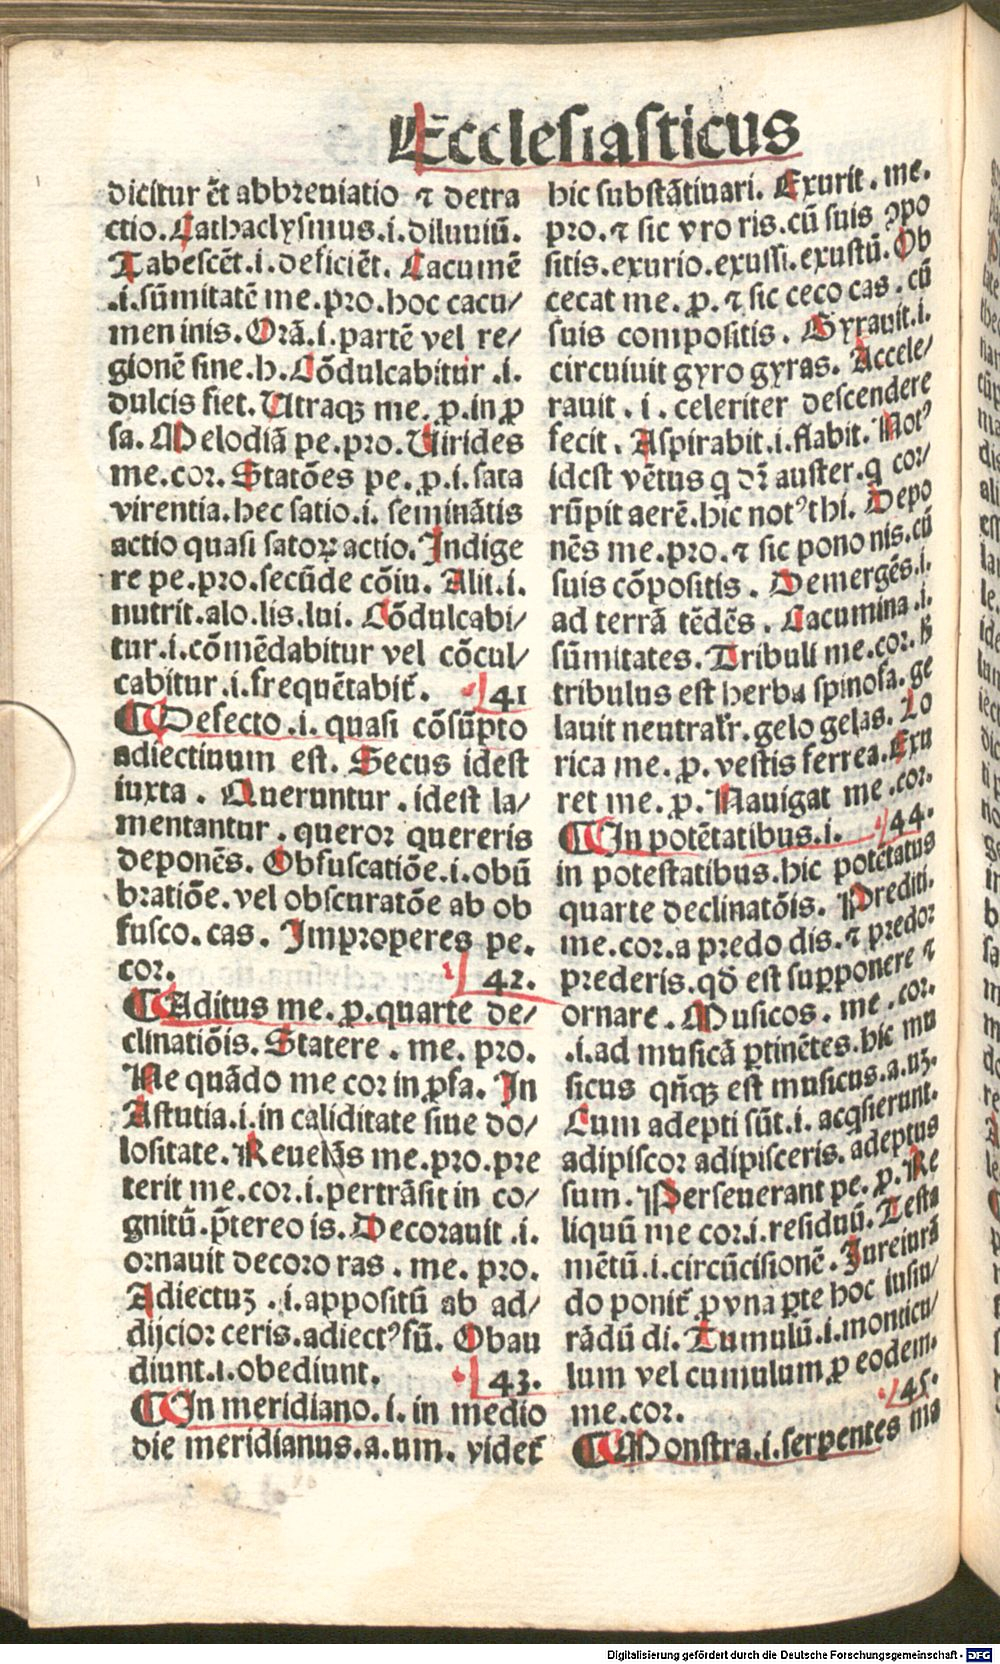 Ecclesiasticus
dicitur ēt abbreuiatio ⁊ detra
ctio. Cathaclysmus.i.diluuiū.
Tabescēt.i.deficiēt. Cacumē
.i.sūmitatē me.pro.hoc cacu/
men inis. Orā.i.partē vel re/
gionē sine.h. Cōdulcabitur .i.
dulcis fiet. Utraqꝫ me. ꝓ.in ꝓ
sa. Melodiā pe.pro. Uirides
me.cor. Statōes pe. ꝓ.i.sata
virentia.hec satio.i. seminātis
actio quasi satoꝝ actio. Indige
re pe.pro.secūde cōiu. Alit.i.
nutrit.alo.lis.lui. Cōdulcabi/
tur.i.cōmēdabitur vel cōcul/
cabitur.i.frequētabit̄. 41
Defecto .i. quasi cōsūpto
adiectiuum est. Secus idest
iuxta . Queruntur . idest la/
mentantur . queror quereris
deponēs. Obfuscatiōe.i.obū
bratiōe.vel obscuratōe ab ob
fusco.cas. Improperes pe.
cor. 42.
Aditus me. ꝓ.quarte de/
clinatiōis. Statere . me. pro.
Ne quādo me cor in ꝓsa. In
Astutia.i.in caliditate siue do/
lositate. Reuelās me.pro.pre
terit me.cor.i.pertrāsit in co/
gnitū.p̄tereo is. Decorauit .i.
ornauit decoro ras . me. pro.
Adiectuꝫ .i.appositū ab ad/
dijcior ceris.adiectꝰ sū. Obau
diunt.i.obediunt. 43.
In meridiano.i.in medio
die meridianus.a.um. videt̄
hic substātiuari. Exurit . me.
pro.⁊ sic vro ris.cū suis ꝯpo
sitis.exurio.exussi.exustū. Ob
cecat me. ꝓ. ⁊ sic ceco cas . cū
suis compositis . Gyrauit.i.
circuiuit gyro gyras. Accele/
rauit . i . celeriter descendere
fecit . Aspirabit.i.flabit. Notꝰ
idest vētus q dr̄ auster.q cor/
rūpit aerē.hic notꝰ thi. Depo
nēs me.pro.⁊ sic pono nis.cū
suis cōpositis . Demergēs.i.
ad terrā tēdēs . Cacumina .i.
sūmitates. Tribuli me.cor.
tribulus est herba spinosa. ge
lauit neutralr̄.gelo gelas. Lo
rica me. ꝓ. vestis ferrea. Exu
ret me. ꝓ. Nauigat me .cor.
In potētatibus.i. 44.
in potestatibus.hic potētatus
quarte declinatōis. Prediti.
me.cor.a predo dis.⁊ predor
prederis.qđ est supponere ⁊
ornare. Musicos. me .cor.
.i.ad musicā ꝑtinētes.hic mu
sicus qn̄qꝫ est musicus.a.uꝫ.
Cum adepti sūt.i. acqsierunt.
adipiscor adipisceris. adeptus
sum. Perseuerant pe. ꝓ. Re
liquū me cor.i.residuū. Testa
mētū.i.circūcisionē. Iureiurā
do ponit̄ ꝓ vna ꝑte hoc iusiu/
rādū di. Tumulū.i.monticu/
lum vel cumulum ꝓ eodem.
me.cor. 45.
Monstra.i.serpentes ma
Digitalisierung gefördert durch die Deutsche Forschungsgemeinschaft - DFG